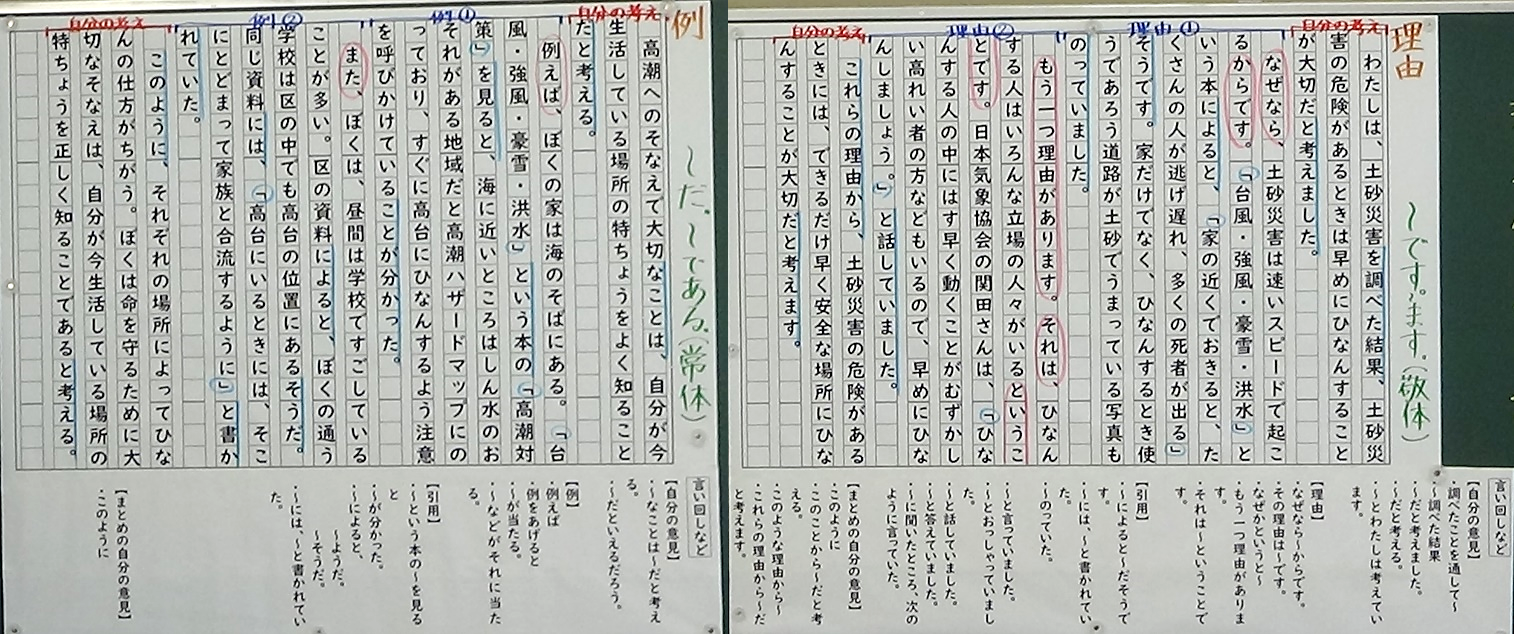 理由
～です。ます。(敬体)
自分の考え
理由①
理由②
自分の考え
わたしは、土砂災害を調べた結果、土砂災
害の危険があるときは早めにひなんすること
が大切だと考えました。
なぜなら、土砂災害は速いスピードで起こ
るからです。「台風・強風・豪雪・洪水」と
いう本によると、「家の近くでおきると、た
くさんの人が逃げ遅れ、多くの死者が出る」
そうです。家だけでなく、ひなんするとき使
うであろう道路が土砂でうまっている写真も
のっていました。
もう一つ理由があります。それは、ひなん
する人はいろんな立場の人々がいるというこ
とです。日本気象協会の関田さんは、「ひな
んする人の中にはす早く動くことがむずかし
い高れい者の方などもいるので、早めにひな
んしましょう。」と話していました。
これらの理由から、土砂災害の危険がある
ときには、できるだけ早く安全な場所にひな
んすることが大切だと考えます。
言い回しなど
【自分の意見】
調べたことを通して～
～調べた結果
・～だと考えました。
・～だと考える。
・～とわたしは考えてい
ます。
【理由】
・なぜなら～からです。
・その理由は～です。
・なぜかというと～
・もう一つ理由がありま
す。
・それは～ということで
す。
【引用】
・～によると～だそうで
す。
・～には、～と書かれてい
た。
・～のっていた。
・～と言っていました。
・～とおっしゃっていまし
た。
・～と話していました。
・～と答えていました。
・～に聞いたところ、次の
ように言っていた。
【まとめの自分の意見】
・このように
・このことから～だと考
える。
・このような理由から～
・これらの理由から～だ
と考えます。
例
～だ。～である。(常体)
自分の考え
例①
例②
自分の考え
高潮へのそなえで大切なことは、自分が今
生活している場所の特ちょうをよく知ること
だと考える。
例えば、ぼくの家は海のそばにある。「台
風・強風・豪雪・洪水」という本の「高潮対
策」を見ると、海に近いところはしん水のお
それがある地域だと高潮ハザードマップにの
っており、すぐに高台にひなんするよう注意
を呼びかけていることが分かった。
また、ぼくは、昼間は学校ですごしている
ことが多い。区の資料によると、ぼくの通う
学校は区の中でも高台の位置にあるそうだ。
同じ資料には、「高台にいるときには、そこ
にとどまって家族と合流するように」と書か
れていた。
このように、それぞれの場所によってひな
んの仕方がちがう。ぼくは命を守るために大
切なそなえは、自分が今生活している場所の
特ちょうを正しく知ることであると考える。
言い回しなど
【自分の意見】
・～なことは～だと考え
る。
・～だといえるだろう。
【例】
・例えば
・例をあげると
・～が当たる。
・～などがそれに当た
る。
【引用】
・～という本の～を見る
と
・～が分かった。
・～によると、
～ようだ。
～そうだ。
・～には、～と書かれてい
た。
【まとめの自分の意見】
・このように